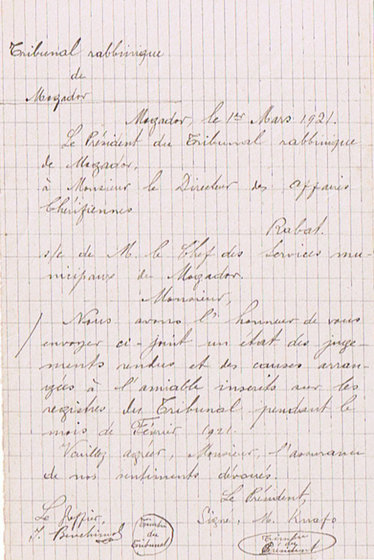 Tribunal rabbinique
de
Mogador
Mogador, le 1er Mars 1921.
Le Président du Tribunal rabbinique
de Mogador,
à Monsieur le Directeur des affaires
Chérifiennes
Rabat.
s/c de M. le Chef des Services mu-
nicipaux de Mogador.
Monsieur,
Nous avons l'honneur de vous
envoyer ci-joint un état des juge-
ments rendus et des causes arran-
gées à l'amiable inscrits sur les
registres du Tribunal pendant le
mois de Février 1921.
Veuillez agréer, Monsieur, l'assurance
de nos sentiments dévoués.
Le Président,
Le Greffier, Signé, M. Knafo
Timbre du Tribunal
Timbre du Président